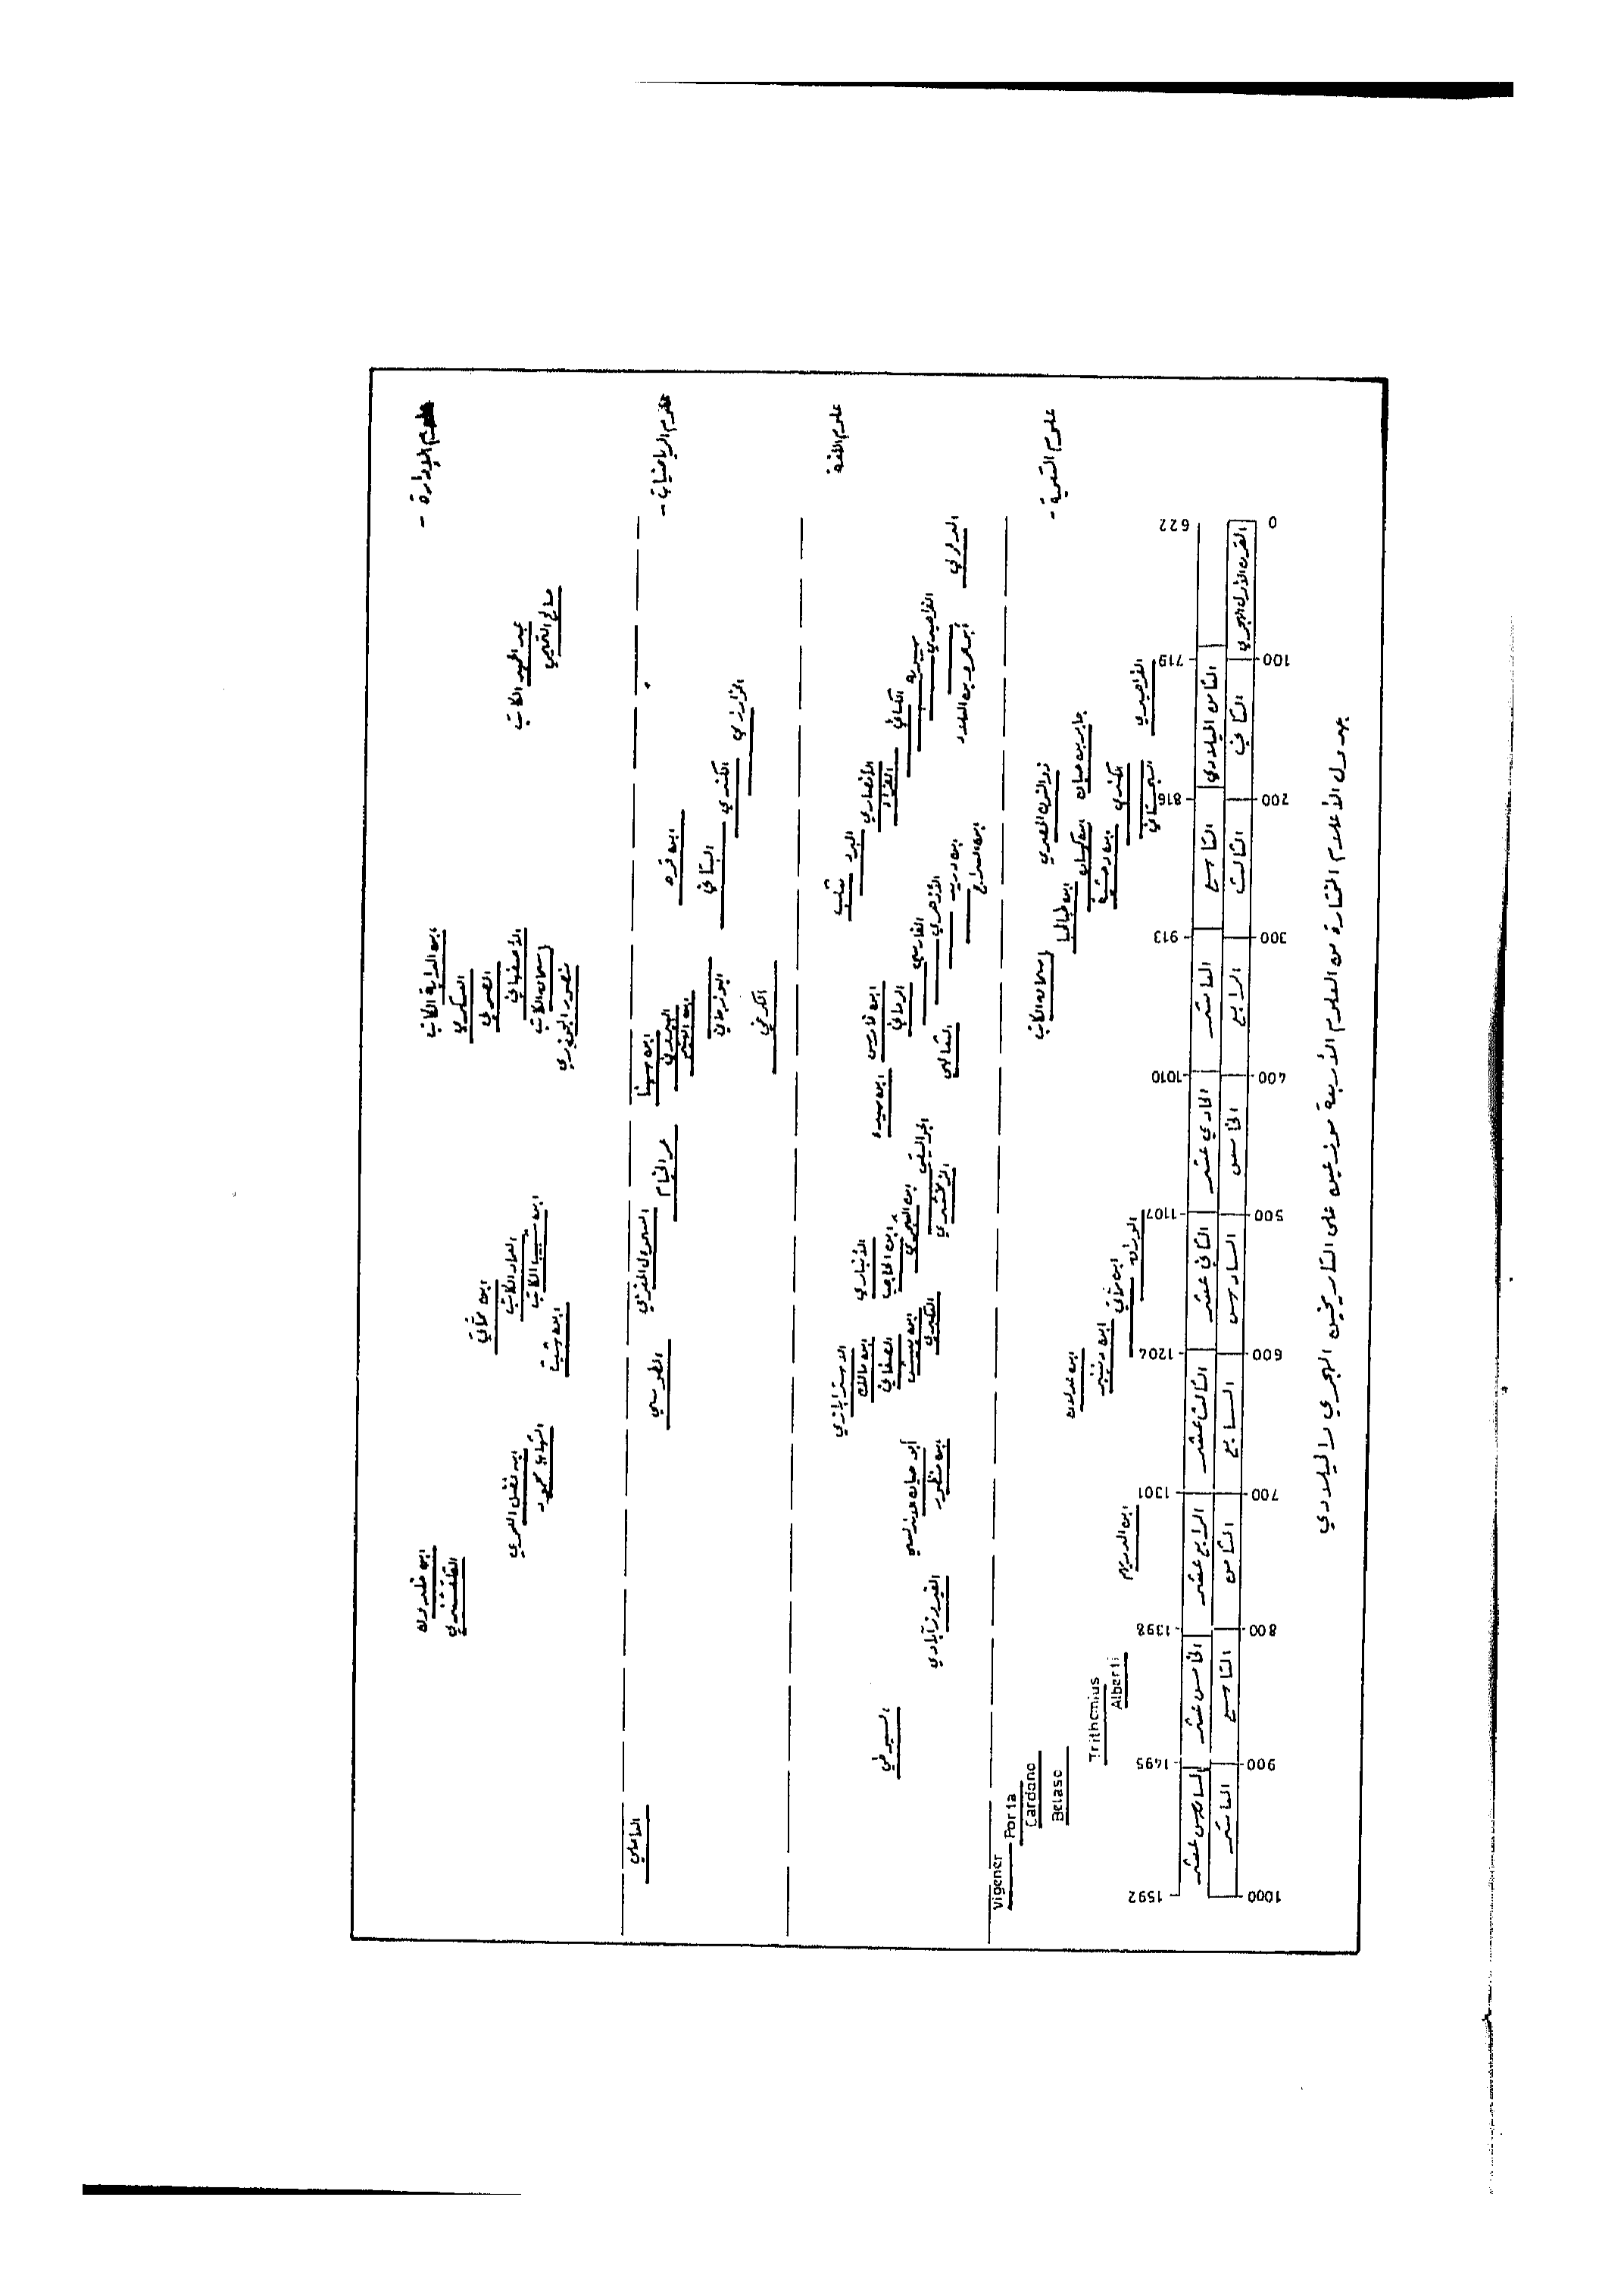 علوم الإدارة -
صالح التميمي
عبد الحميد الكاتب
ابن الداية الكاتب
العسكري
الصولي
الأصفهاني
إسحاق الكاتب
منصور الجوذري
ابن مماتي
العماد الكاتب
ابن شيث
الشهاب محمود
ابن فضل العمري
ابن خلدون
القلقشندي
علوم الرياضيات -
الخوارزمي
الكندي
البتاني
ابن قره
الكرخي
البوزجاني
ابن الهيثم
البيروني
ابن سينا
عمر الخيام
السموءل المغربي
الطوسي
العاملي
علوم اللغة
الدؤلي
الفراهيدي
أبو عمرو بن العلاء
سيبويه
الكسائي
الفراء
الأنصاري
المبرد
ثعلب
ابن السراج
ابن دريد
الأزهري
الفارسي
الرماني
ابن فارس
الثعالبي
ابن سيده
الجواليقي
الزمخشري
ابن الشجري
ابن الحاجب
الأنباري
العكبري
ابن يعيش
الصغاني
ابن مالك
الاستراباذي
ابن منظور
أبو حيان الاندلسي
الفيروزآبادي
السيوطي
علوم التعمية -
الفراهيدي
جابر بن حيان
الكندي
السجستاني
ذو النون المصري
ابن وحشية
ابن كيسان
ابن طباطبا
إسحاق الكاتب
الوراق
ابن مماتي
ابن دنينير
ابن عدلان
ابن الدريهم
Alberti
Trithemius
Belaso
Cardano
Porta
Vigener
622
719
816
913
1010
1107
1204
1301
1398
1495
1592
الثامن الميلادي
التاسع
العاشر
الحادي عشر
الثاني عشر
الثالث عشر
الرابع عشر
الخامس عشر
السادس عشر
القرن الأول الهجري
الثاني
الثالث
الرابع
الخامس
السادس
السابع
الثامن
التاسع
العاشر
0
100
200
300
400
500
600
700
800
900
1000
جدول الأعلام المختارة من العلوم الأربعة موزعين على التاريخين الهجري والميلادي